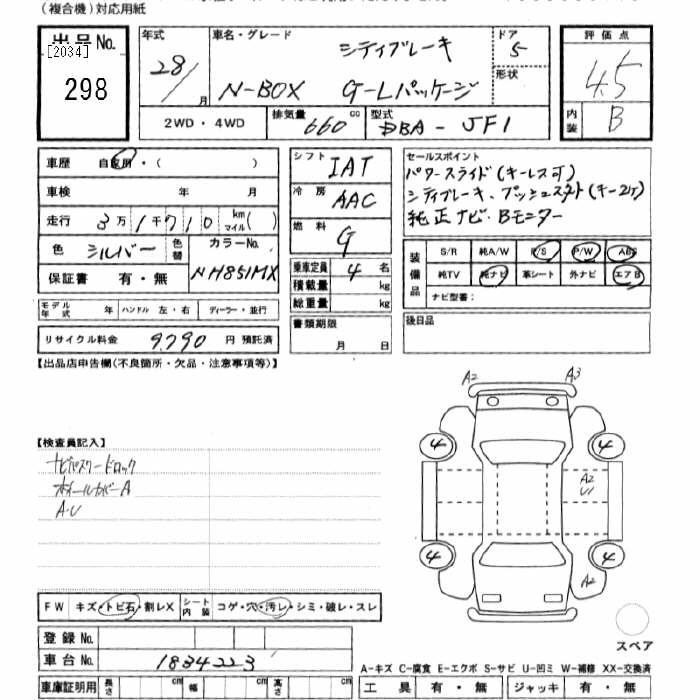 (複合機)対応用紙
出品No.
[2034]
298
年式 28/ 月
車名・グレード
シティブレーキ
N-BOX G-Lパッケージ
ドア 5
形状
2WD・4WD
排気量 660 cc
型式 DBA-JF1
評価点
4.5
内装 B
車歴 自家用・( )
車検 年 月
走行 3万1千710 km マイル( )
色 シルバー 色替
カラーNo. NH851MX
保証書 有・無
モデル年式 年 ハンドル 左・右 ディーラー・並行
リサイクル料金 9,790 円 預託済
シフト IAT
冷房 AAC
燃料 G
乗車定員 4 名
積載量 kg
総重量 kg
書類期限 月 日
セールスポイント
パワースライド(キーレス可)
シティブレーキ、プッシュスタート(キー2ケ)
純正ナビ・Bモニター
装備品
S/R 純A/W P/S P/W ABS
純TV 純ナビ 革シート 外ナビ エアB
ナビ型番:
後日品
【出品店申告欄(不良箇所・欠品・注意事項等)】
【検査員記入】
ナビパスワードロック
ホイールカバーA
A・U
A2 A3
4 4
A2
U1
4 4
A2
スペア
FW キズ・トビ石・割レX
シート内装 コゲ・穴・汚レ・シミ・破レ・スレ
登録No.
車台No. 1834223
車庫証明用 長さ cm 幅 cm 高さ cm
A-キズ C-腐食 E-エクボ S-サビ U-凹ミ W-補修 XX-交換済
工具 有・無 ジャッキ 有・無